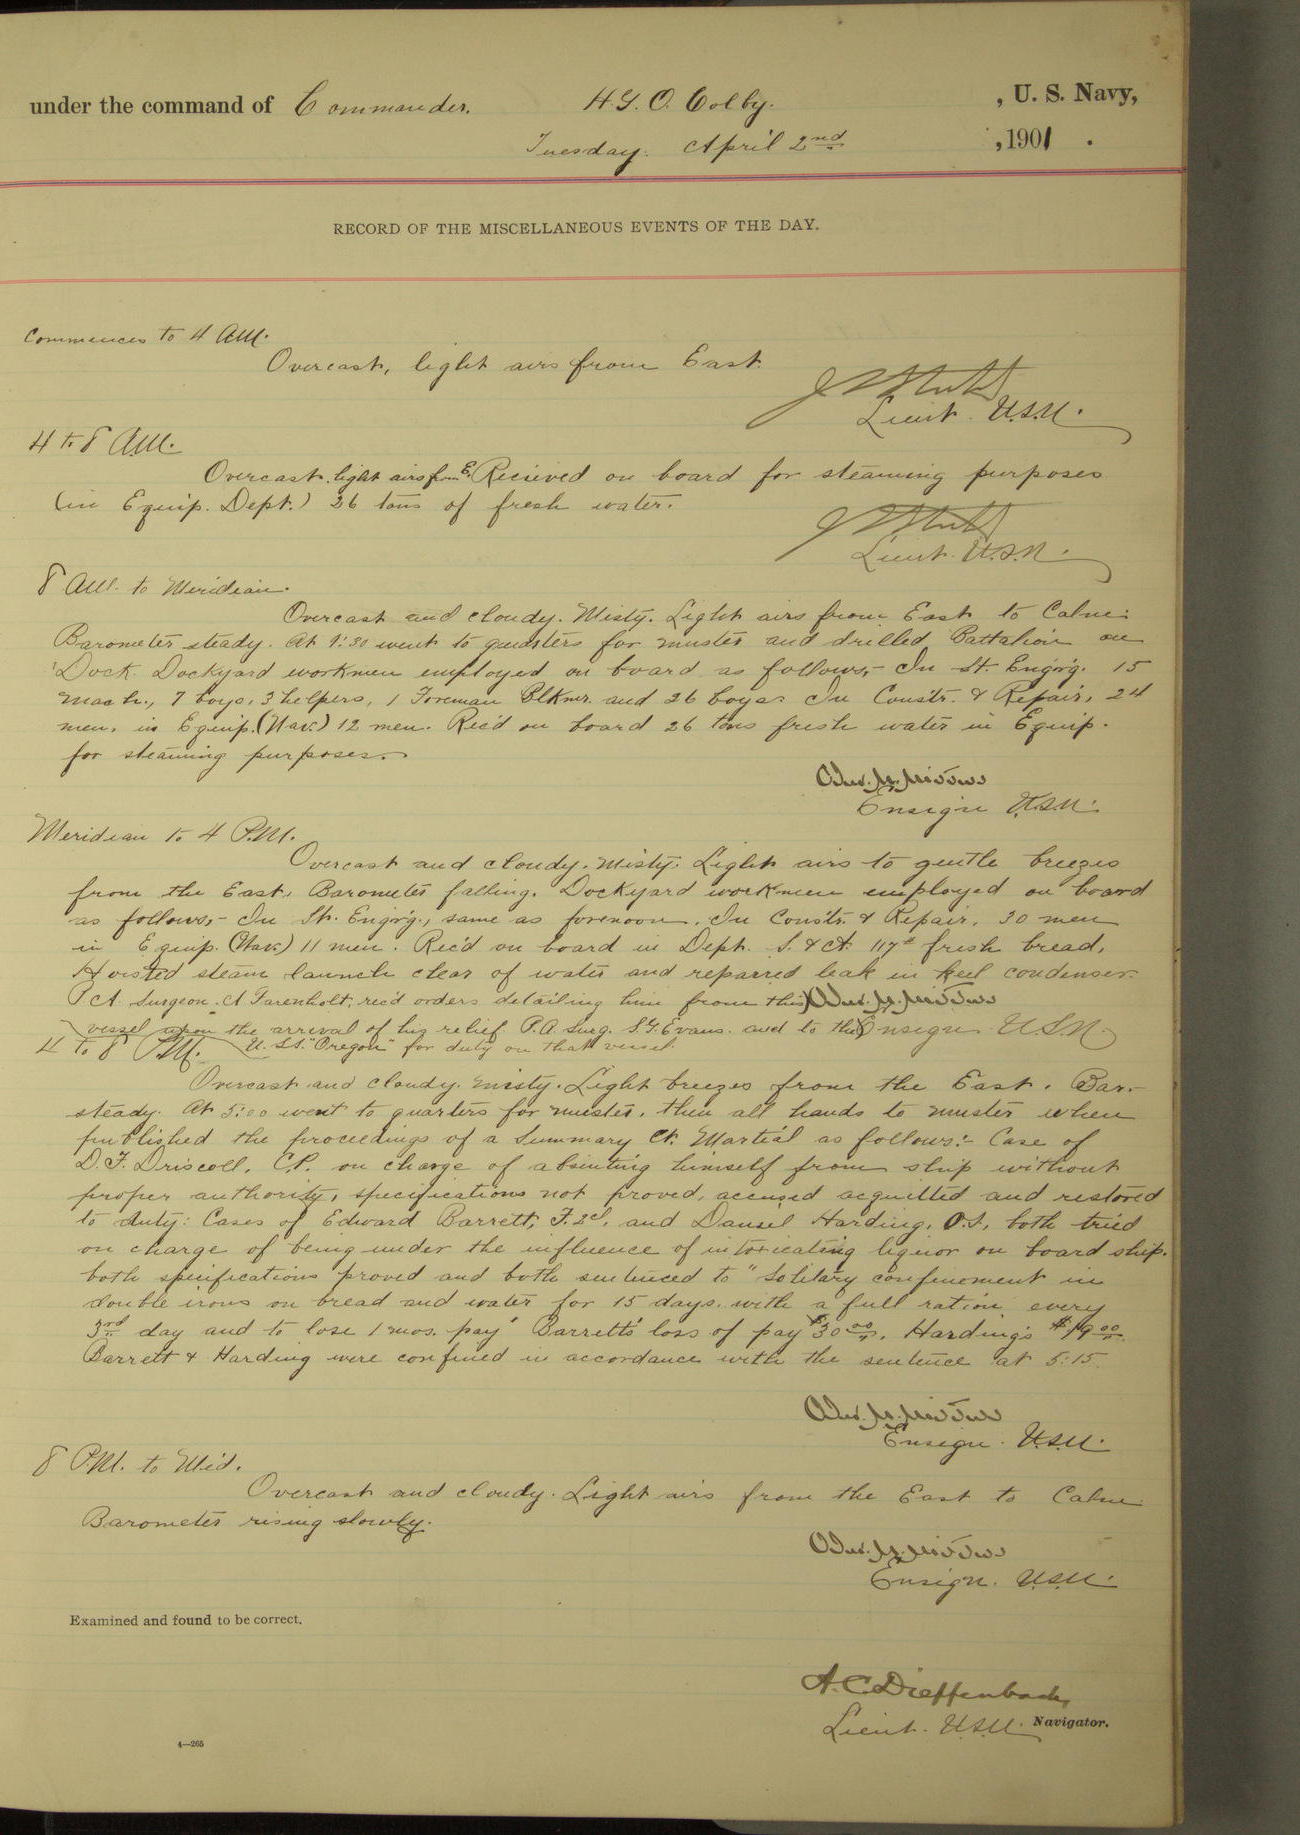 under the command of Commander. H. G. O. Colby. , U. S. Navy,
Tuesday. April 2nd , 1901 .
RECORD OF THE MISCELLANEOUS EVENTS OF THE DAY.
Commences to 4 A.M.
Overcast, light airs from East.
Lieut. U.S.N.
4 to 8 A.M.
Overcast, light airs from E. Recieved on board for steaming purposes
(in Equip. Dept.) 26 tons of fresh water.
Lieut. U.S.N.
8 A.M. to Meridian.
Overcast and cloudy. Misty. Light airs from East to Calm.
Barometer steady. At 9:30 went to quarters for muster and drilled Battalion on
Dock. Dockyard workmen employed on board as follows,- In St. Eng'r'g. 15
mach., 7 boys, 3 helpers, 1 Foreman Blkmr. and 26 boys. In Constr. & Repair, 24
men, in Equip. (Nav.) 12 men. Rec'd on board 26 tons fresh water in Equip.
for steaming purposes.
Ensign U.S.N.
Meridian to 4 P.M.
Overcast and cloudy. Misty. Light airs to gentle breezes
from the East. Barometer falling. Dockyard workmen employed on board
as follows,- In St. Eng'r'g., same as forenoon. In Constr. & Repair, 30 men
in Equip. (Nav.) 11 men. Rec'd on board in Dept. S. & A. 117# fresh bread.
Hoisted steam launch clear of water and repaired leak in keel condenser.
P.A. Surgeon. A Farenholt, rec'd orders detailing him from this
vessel upon the arrival of his relief P.A. Surg. S.G. Evans. and to the Ensign U.S.N.
4 to 8 P.M. U.S.S. "Oregon" for duty on that vessel.
Overcast and cloudy. Misty. Light breezes from the East. Bar.
steady. At 5:00 went to quarters for muster, then all hands to muster when
published the proceedings of a Summary Ct. Martial as follows:- Case of
D.F. Driscoll, C.P. on charge of absenting himself from ship without
proper authority, specifications not proved, accused acquitted and restored
to duty: Cases of Edward Barrett, F.2cl, and Daniel Harding, O.S. both tried
on charge of being under the influence of intoxicating liquor on board ship.
both specifications proved and both sentenced to "Solitary confinement in
double irons on bread and water for 15 days, with a full ration every
3rd day and to lose 1 mos. pay" Barrett's loss of pay $30 00, Harding's $19 00.
Barrett & Harding were confined in accordance with the sentence at 5:15.
Ensign. U.S.N.
8 P.M. to Mid.
Overcast and cloudy. Light airs from the East to Calm.
Barometer rising slowly.
Ensign. U.S.N.
Examined and found to be correct.
A. C. Dieffenbach,
Lieut. U.S.N. Navigator.
4—265